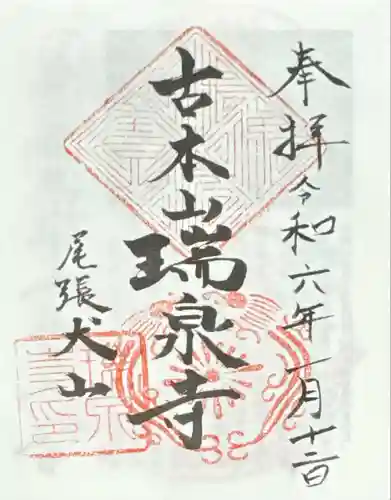 奉拝 令和六年一月十二日
古木山瑞泉寺
尾張犬山